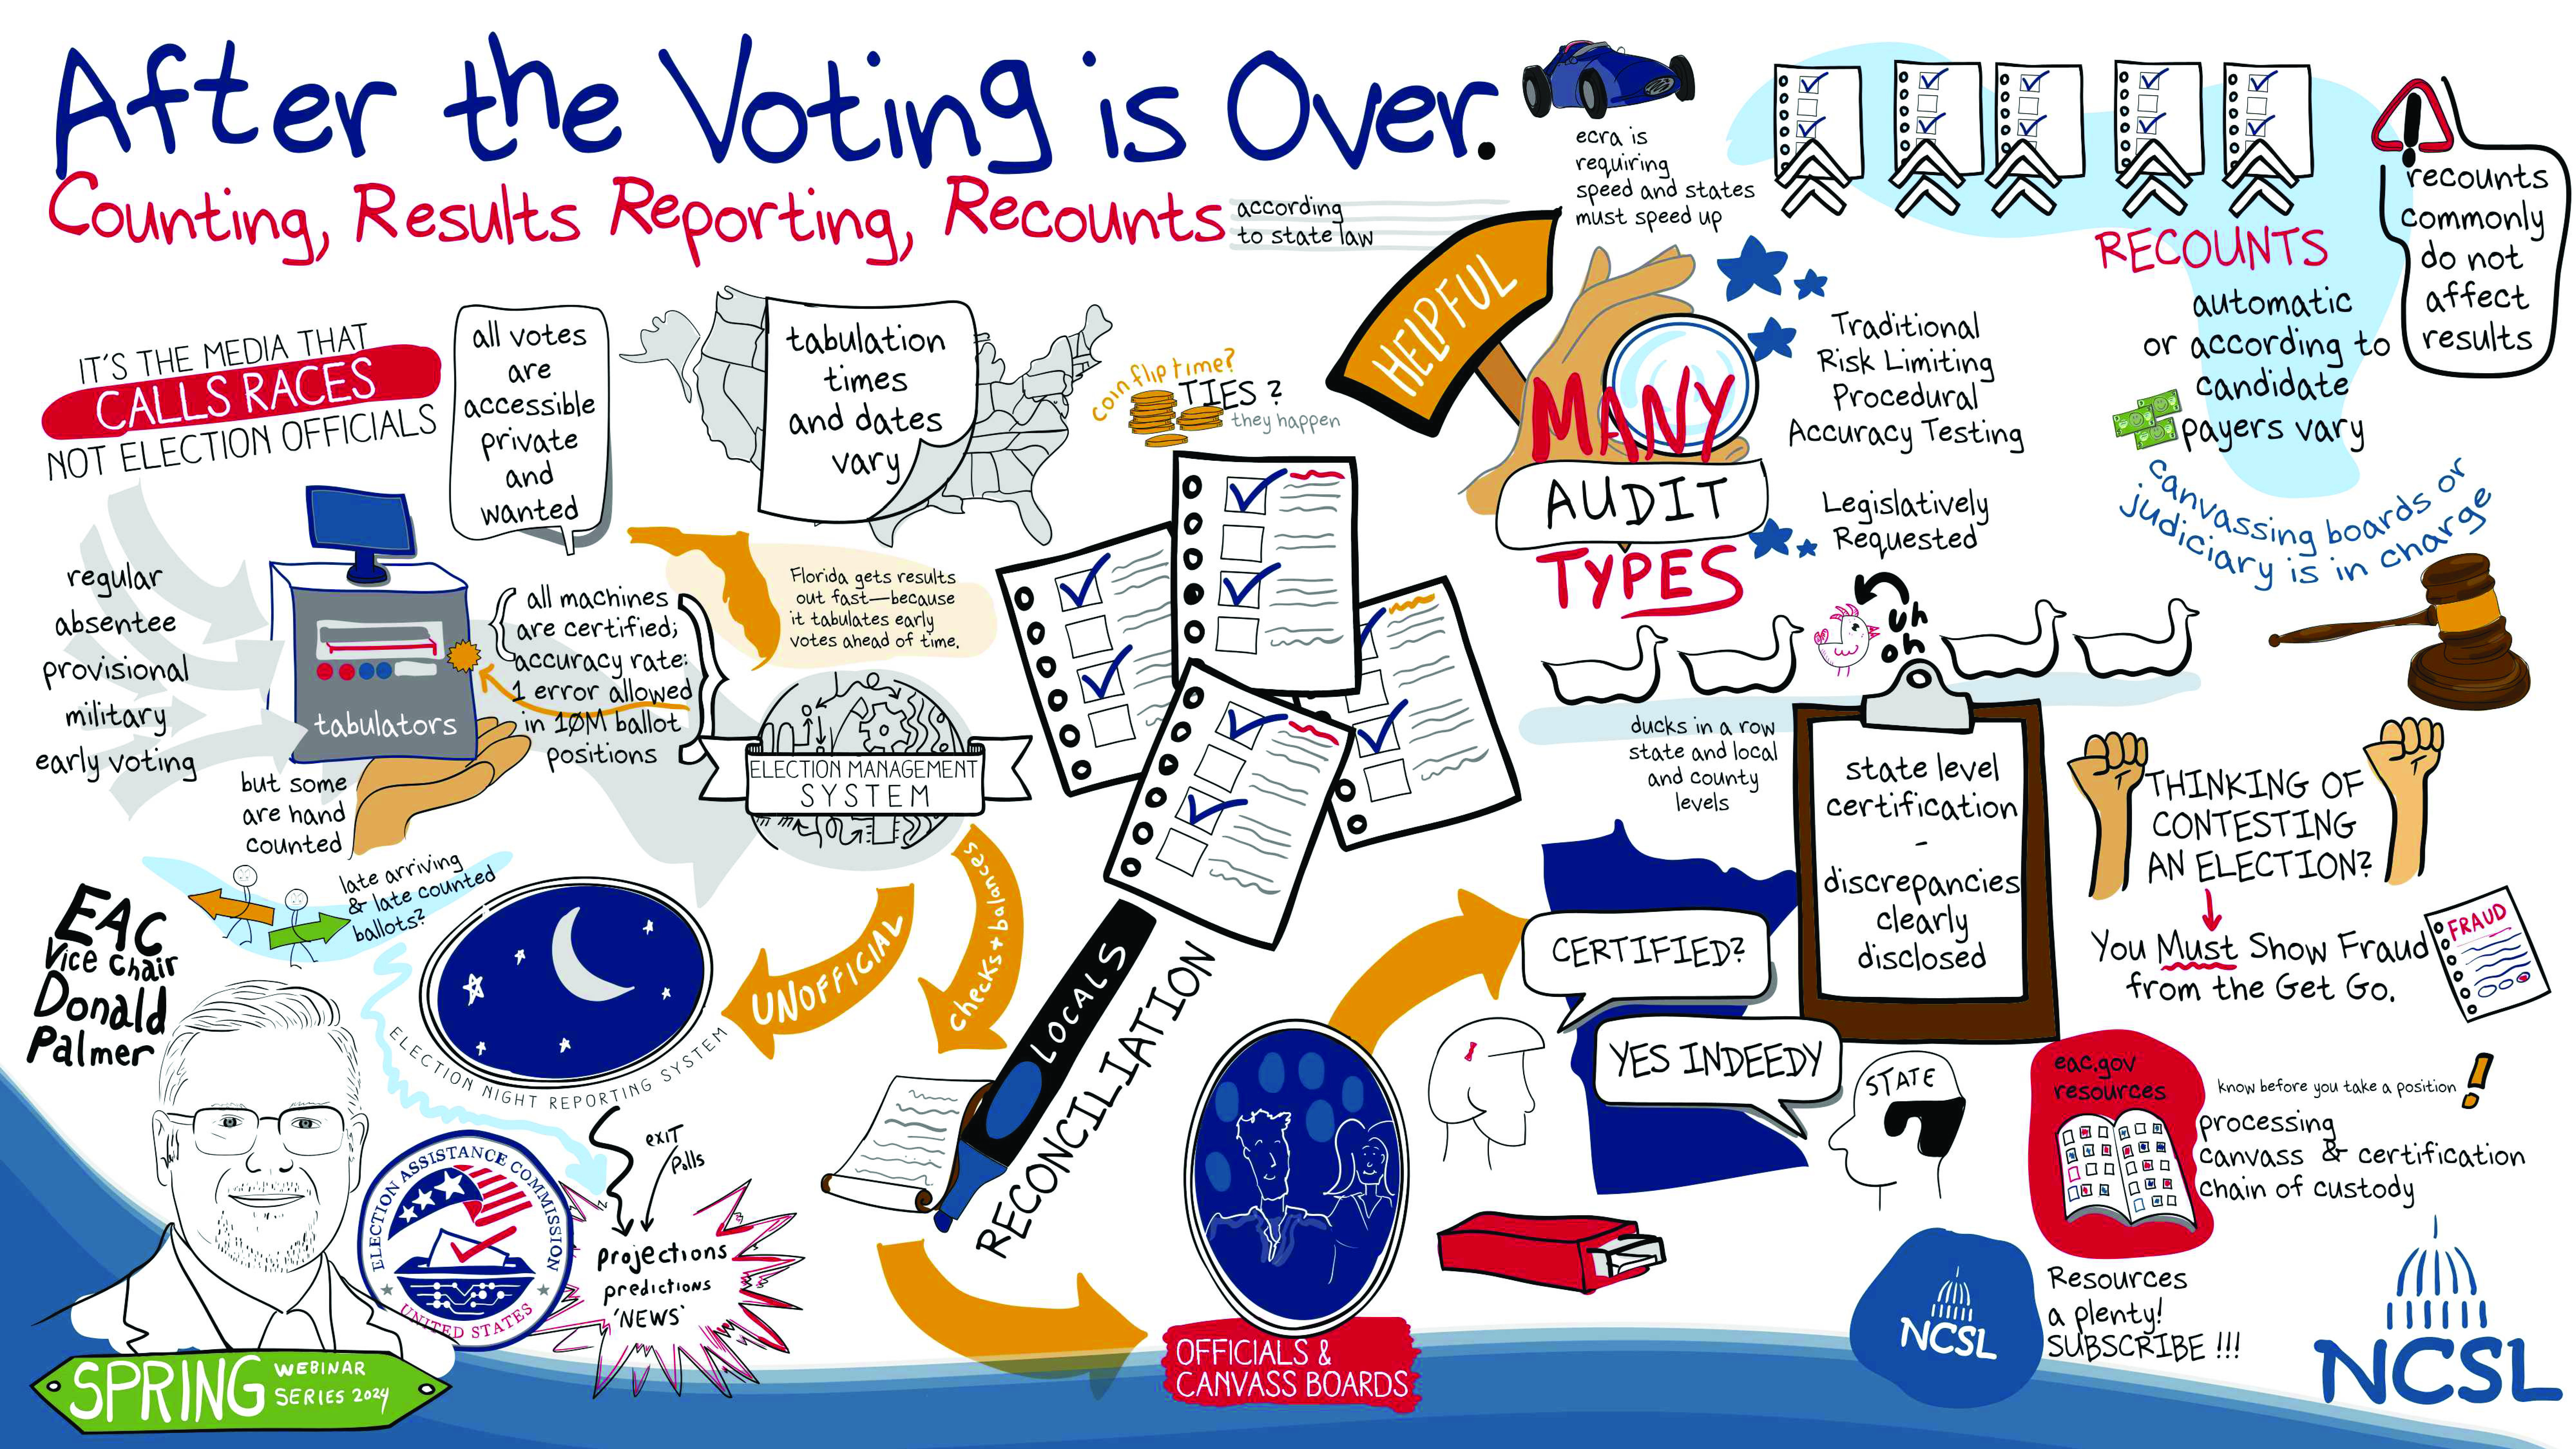 After the Voting is Over.
Counting, Results Reporting, Recounts
according
to state law
IT'S THE MEDIA THAT
CALLS RACES
NOT ELECTION OFFICIALS
all votes
are
accessible
private
and
wanted
tabulation
times
and dates
vary
coin flip time?
TIES?
they happen
HELPFUL
ecra is
requiring
speed and states
must speed up
MANY
AUDIT
TYPES
Traditional
Risk Limiting
Procedural
Accuracy Testing
Legislatively
Requested
RECOUNTS
automatic
or according to
candidate
payers vary
canvassing boards or
judiciary is in charge
recounts
commonly
do not
affect
results
regular
absentee
provisional
military
early voting
tabulators
but some
are hand
counted
all machines
are certified;
accuracy rate:
1 error allowed
in 10M ballot
positions
Florida gets results
out fast—because
it tabulates early
votes ahead of time.
ELECTION MANAGEMENT
SYSTEM
late arriving
& late counted
ballots?
EAC
Vice Chair
Donald
Palmer
ELECTION NIGHT REPORTING SYSTEM
UNOFFICIAL
checks + balances
LOCALS
RECONCILIATION
exit
Polls
projections
predictions
'NEWS'
ELECTION ASSISTANCE COMMISSION
UNITED STATES
SPRING
WEBINAR
SERIES 2024
OFFICIALS &
CANVASS BOARDS
uh
oh
ducks in a row
state and local
and county
levels
state level
certification
-
discrepancies
clearly
disclosed
CERTIFIED?
YES INDEEDY
STATE
THINKING OF
CONTESTING
AN ELECTION?
You Must Show Fraud
from the Get Go.
FRAUD
eac.gov
resources
know before you take a position
processing
canvass & certification
chain of custody
NCSL
Resources
a plenty!
SUBSCRIBE !!!
NCSL